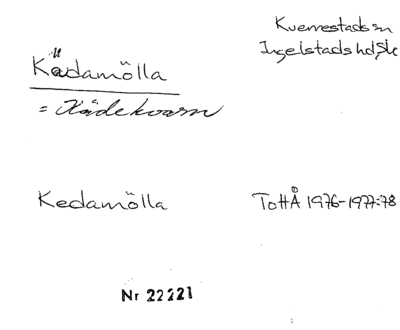 Kverrestads sn
Ingelstads hd, Sk
Kädamölla
= Kädekvarn
Kedamölla
ToHÅ 1976-1977:78
Nr 22221